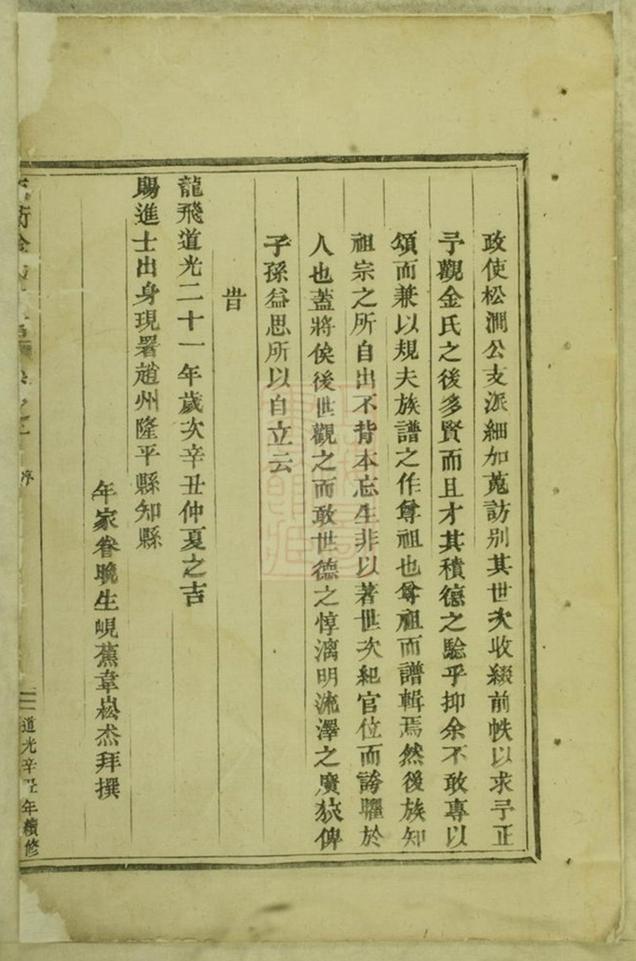 政使松澗公支派細加蒐訪別其世次收綴前帙以求予正
予觀金氏之後多賢而且才其積德之驗乎抑余不敢專以
頌而兼以規夫族譜之作尊祖也尊祖而譜輯焉然後族知
祖宗之所自出不背本忘生非以著世次紀官位而誇耀於
人也蓋將俟後世觀之而敢世德之惇漓明流澤之廣狹俾
子孫益思所以自立云
旹
龍飛道光二十一年歲次辛丑仲夏之吉
賜進士出身現署趙州隆平縣知縣
年家眷晚生峴蕉韋崧杰拜撰
序
道光辛丑年續修